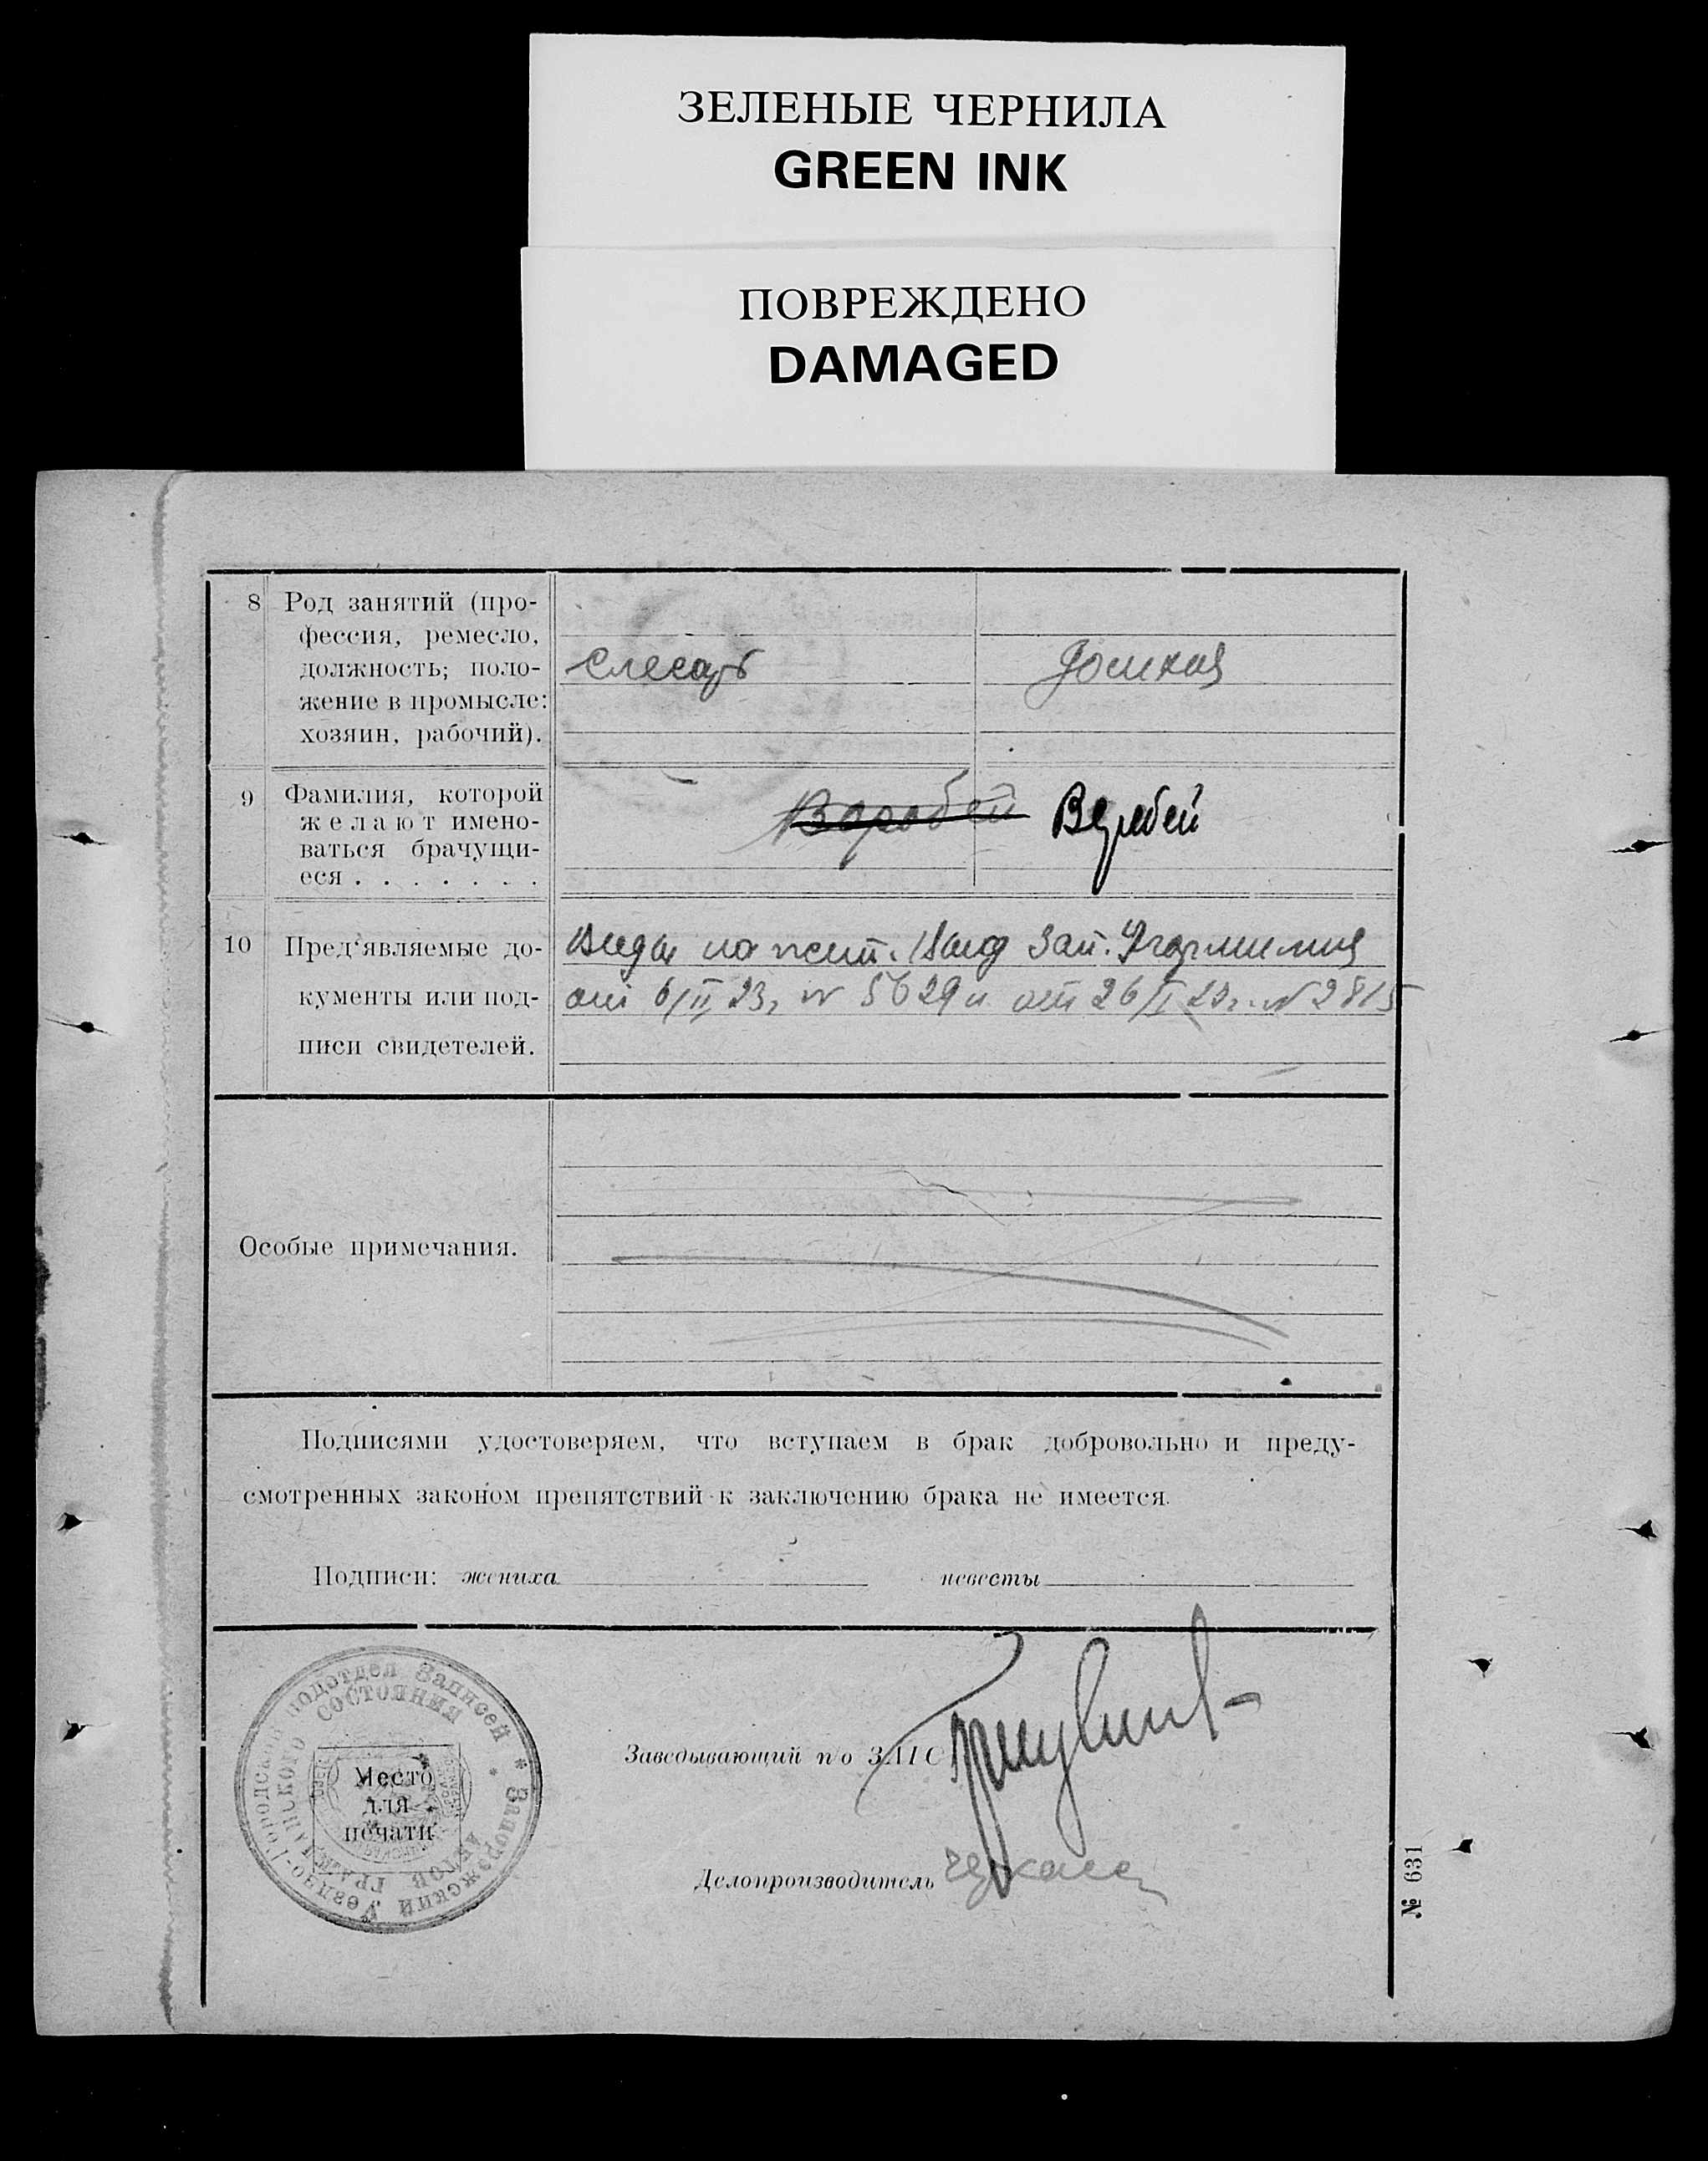 ЗЕЛЕНЫЕ ЧЕРНИЛА
GREEN INK
ПОВРЕЖДЕНО
DAMAGED
8 Род занятий (про-
фессия, ремесло,
должность; поло-
жение в промысле:
хозяин, рабочий).
слесарь
9 Фамилия, которой
желают имено-
ваться брачущи-
еся . . . . . . .
Воробей Воробей
10 Пред'являемые до-
кументы или под-
писи свидетелей.
Виды на жит. Зап.
от 6/II 23, № 5629 и от 26/I 23г. № 2815
Особые примечания.
Подписями удостоверяем, что вступаем в брак добровольно и преду-
смотренных законом препятствий к заключению брака не имеется.
Подписи: жениха невесты
Запорожский Уездно-Городской подотдел Записей
актов гражданского состояния
Место
для
печати
Заведывающий п/о ЗАГС
Делопроизводитель
№ 631